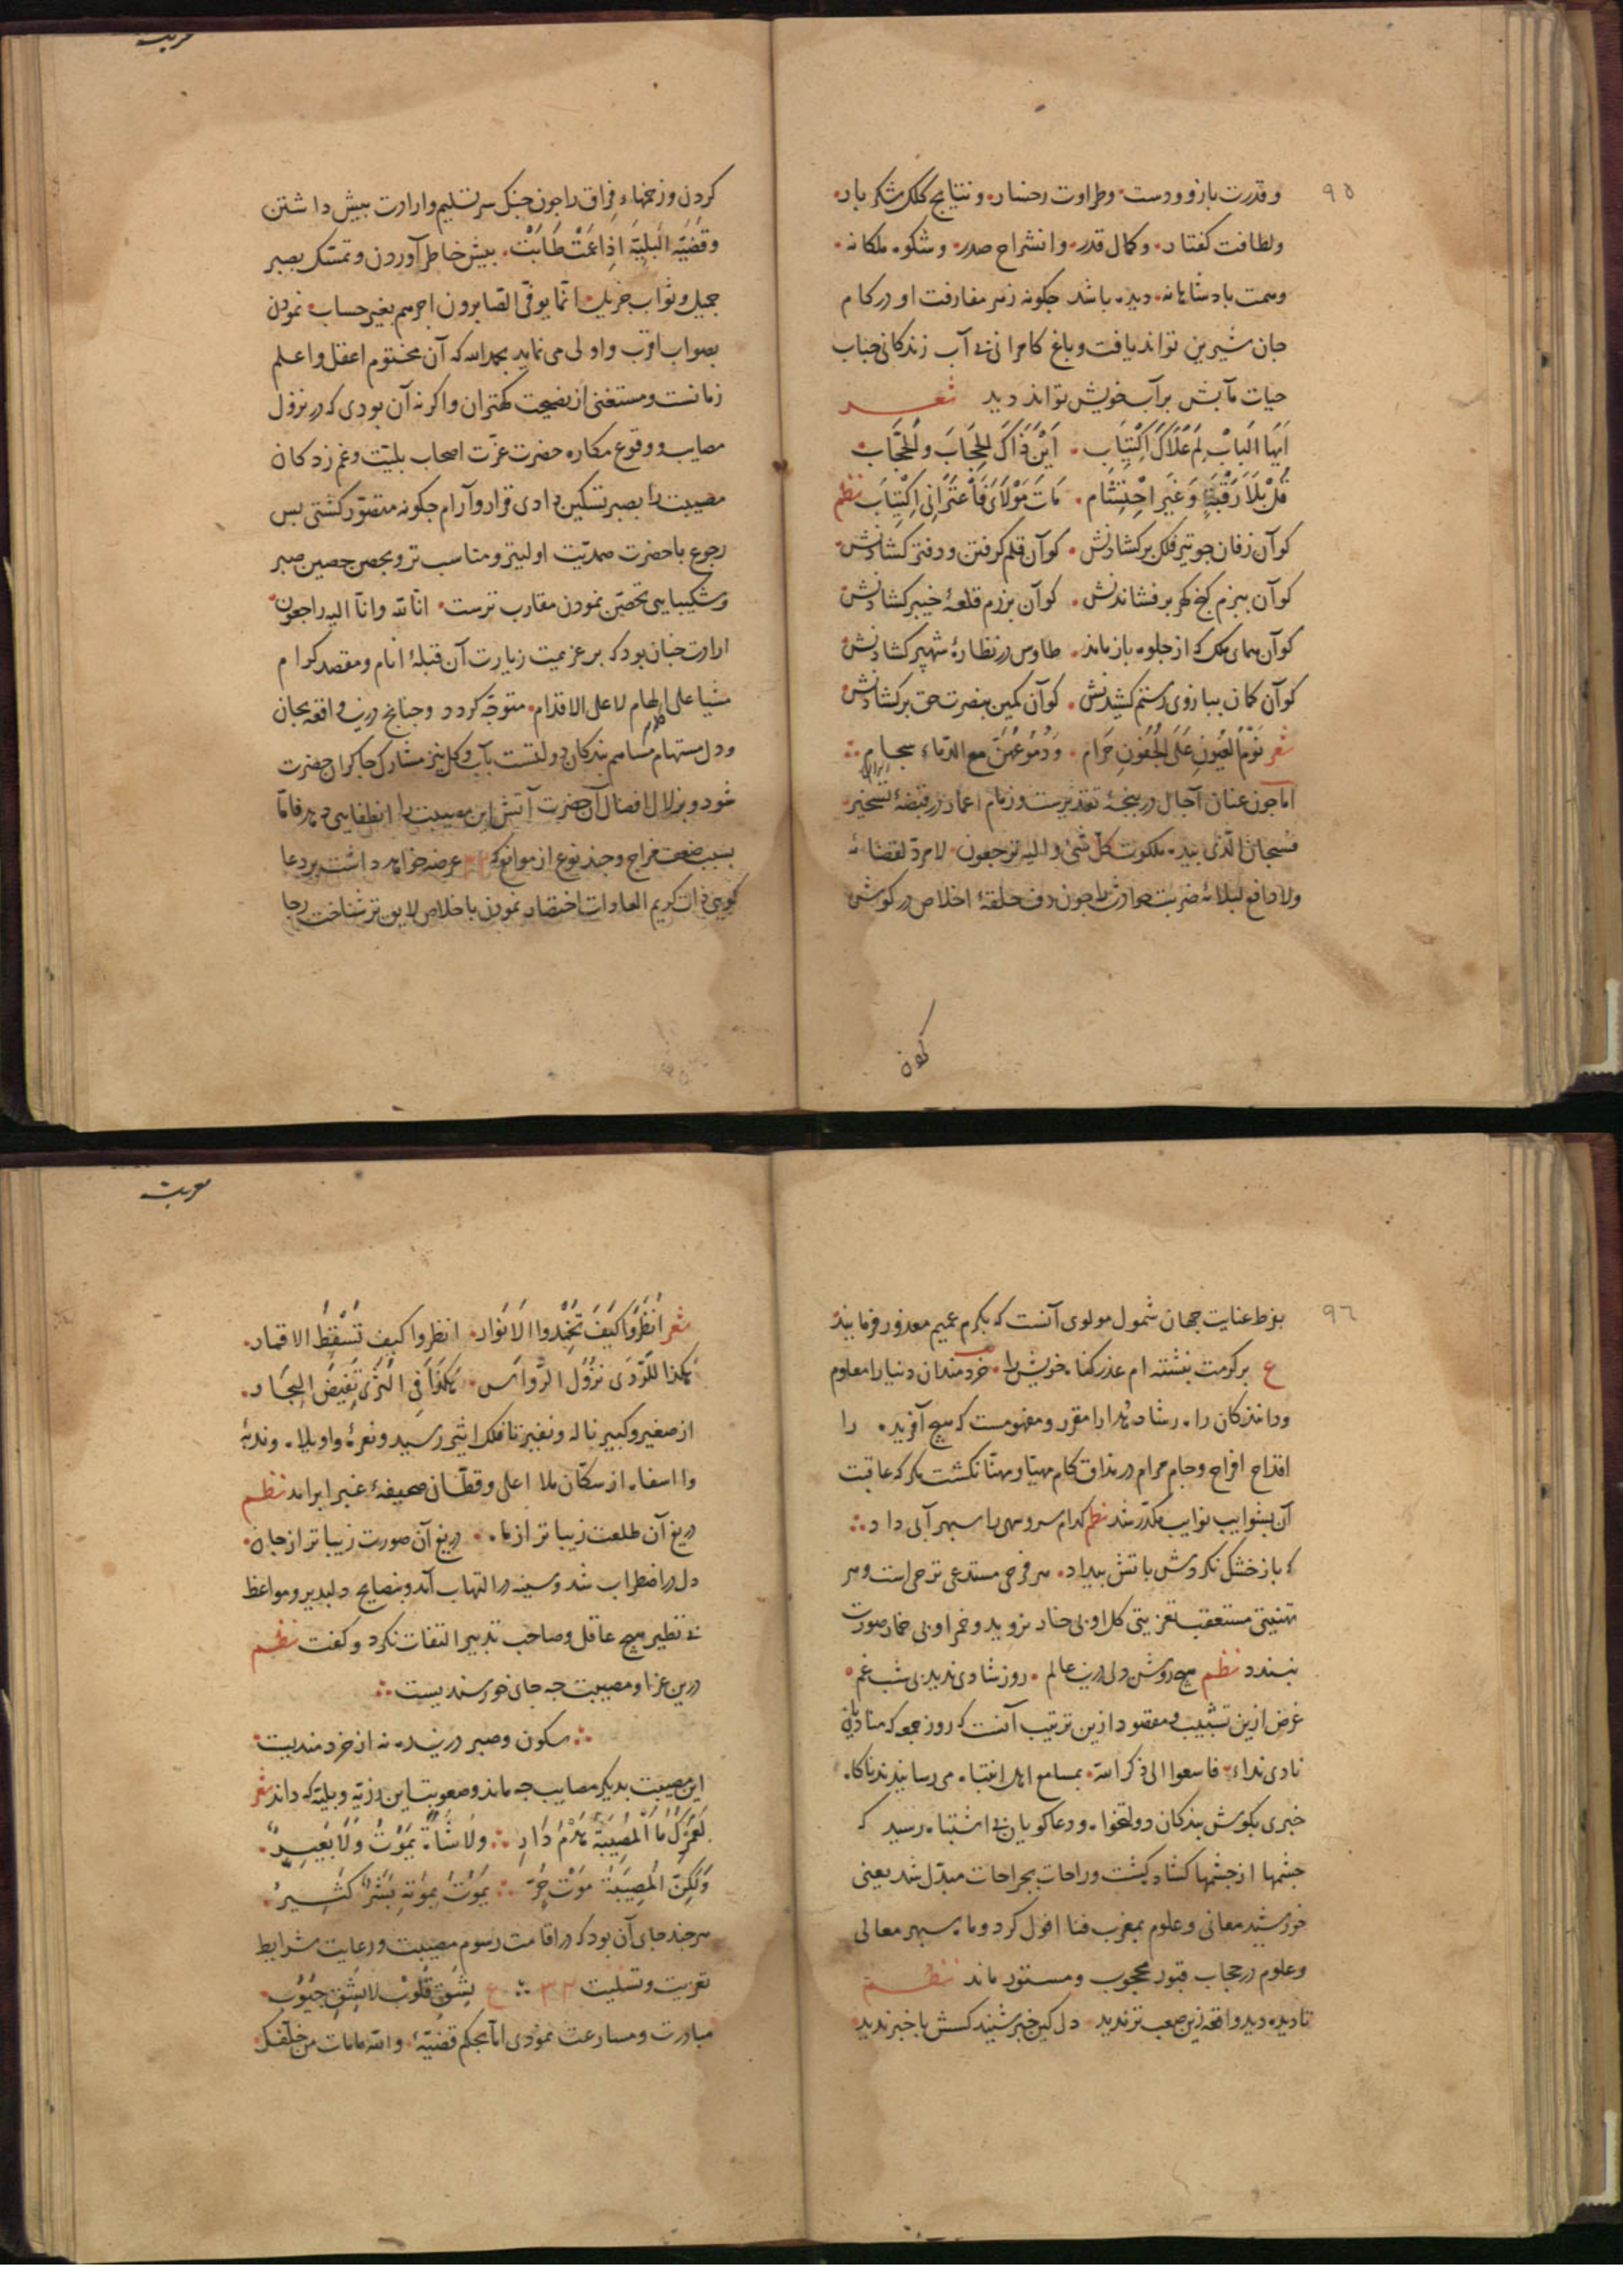 ٩٥
و قدرت بازو و دست و طراوت رخسار و نتایج کلک شکربار
ولطافت کفتار وکمال قدر وانشراح صدر وشکوه ملکانه
وسمت بادشاهانه دیده باشد جکونه زهر مفارقت او در کام
جان شیرین تواند یافت وباغ کامرانی بی آب زندکانی جناب
حیات مآبش برآب خویش تواند دید شعر
اَیّها البابُ لِمْ عَلاکَ اکتیاب اَینَ ذاکَ الحِجابَ والحُجّاب
قُلْ بلا رَقْبَةٍ وَغیرِ احتِشام مَاتَ مَوْلایَ فَاعْتَرانی اکتِیاب نظم
کوآن زفان جو تیر فلک برکشادنش کوآن قلم کرفتن ودفتر کشادنش
کوآن ببزم کنج کهر برفشاندنش کوآن برزم قلعهٔ خیبر کشادنش
کوآن همای ملک که از جلوه باز ماند طاوس در نظارهٔ شهپر کشادنش
کوآن کمان ببازوی رستم کشیدنش کوآن کمین بنصرت حق برکشادنش
شعر نَوْمُ العُیونِ عَلَی الجُفُونِ حَرام وَدُمُوعُهُنَّ مع الدّماء سجام
اما جون عنان آجال در بنجهٔ تقدیرست وزمام اعمار در قبضهٔ تسخیر
فسبحان الذی بیده ملکوت کل شیٔ والیه ترجعون لا مردّ لقضائه
ولادافع لبلائه ضربت حوادث را جون دف حلقهٔ اخلاص در کوش
کردن
کردن وزخمهاء فراق راجون جنک سر تسلیم وارادت بیش داشتن
وقضیّه البَلِیّة اذا عَمّتْ طَابَتْ بیش خاطر آوردن وتمسّک بصبر
جمیل وثواب جزیل انّما یوفّی الصّابرون اجرهم بغیر حساب نمودن
بصواب اقرب واولی می نماید بحمدالله که آن مخدوم اعقل واعلم
زمانست ومستغنی از نصیحت کهتران واکر نه آن بودی که در نزول
مصایب ووقوع مکاره حضرت عزّت اصحاب بلیّت وغم زدکان
مصیبت را بصبر تسکین دادی قرار وآرام جکونه متصوّر کشتی بس
رجوع باحضرت صمدیّت اولیتر ومناسب تر وبحصن حصین صبر
وشکیبایی تحصّن نمودن مقارب ترست انّا لله وانّا الیه راجعون
ارادت جنان بود که بر عزیمت زیارت آن قبلهٔ انام ومقصد کرام
مشیا علی الهام لا علی الاقدام متوجّه کردد وجنانج درین واقعه بجان
ودل مستهام مساهم بندکان دولتست بآب وکل نیز مشارک جاکران حضرت
شود وبزلال افضال آن حضرت آتش این مصیبت را انطفایی دهد فامّا
بسبب ضعف مزاج وجند نوع از موانع که عرضه خواهد داشت بر دعا
کویی ذات کریم العادات اختصار نمودن باخلاص لایق تر شناخت رجا
٩٦
بفرط عنایت جهان شمول مولوی آنست که بکرم عمیم معذور فرمایند
ع برکرمت نبشته ام عذر کناه خویش را خردمندان دنیا را معلوم
وداننذکان راه رشاد وهدا را مقرر ومفهومست که هیچ آفریده را
اقداح افراح وجام مرام در مذاق کام مهیّا ومهنّا نکشت مکر که عاقبت
آن بشوایب نوایب مکدّر شد نظم کدام سرو سهی را سبهر آبی داد
که باز خشک نکردش باتش بیداد هر فرحی مستدعی ترحی است وهر
تهنیتی مستعقب تعزیتی کل او بی خار نروید وخمر او بی خمار صورت
نبندد نظم هیچ روشن دلی درین عالم روز شادی ندید بی شب غم
غرض ازین تشبیب ومقصود ازین ترتیب آنست که روز جمعه که منادیان
نادی نداء فاسعوا الی ذکر الله بمسامع اهل انتباه می رسانیدند ناکاه
خبری بکوش بندکان دولتخواه ودعاکویان بی اشتباه رسید که
جشمها از جشمها کشاده کشت وراحات بجراحات مبدّل شد یعنی
خورشید معانی وعلوم بمغرب فنا افول کرد وماه سبهر معالی
وعلوم در حجاب قبور محجوب ومستور ماند نظم
تا دیده دید واقعه زین صعب تر ندید دل کین خبر شنید کسش باخبر ندید
شعر اُنظُروا کیفَ تُخمَدوا الانوار انظروا کیف تَسْقُطُ الاقمار
هکذا للرّدی نزُولُ الرّواسی هکذا فی الثری تَغیضُ البِحار
از صغیر وکبیر ناله ونفیر تا فلک اثیر رسید ونعرهٔ واویلاه وندبهٔ
وا اسفاه از سکّان ملا اعلی وقطّان صحیفهٔ غبرا برآمد نظم
دریغ آن طلعت زیباتر از ماه دریغ آن صورت زیباتر از جان
دل در اضطراب شد وسینه در التهاب آمد وبنصایح دلبذیر ومواعظ
بی نظیر هیچ عاقل وصاحب تدبیر التفات نکرد وکفت نظم
درین عزا ومصیبت جه جای خورسندیست
سکون وصبر درین ره نه از خردمندیست
این مصیبت بدیکر مصایب جه ماند وصعوبت این رزیّه وبلیّه که داند شعر
لَعَمْرُکَ ما المُصِیبَةُ هَدْمُ دَارٍ ولا شاةٌ تَمُوتُ ولا بَعِیرٌ
وَلکِنَّ المُصِیبَةَ مَوْتُ حُرٍّ یَمُوتُ بمَوتِهِ بَشَرٌ کَثِیرٌ
هرجند جای آن بود که در اقامت رسوم مصیبت ورعایت شرایط
تعزیت وتسلیت ع بِشَقِّ قُلُوبٍ لا بِشَقِّ جُیُوبٍ
مبادرت ومسارعت نمودی امّا بحکم قضیّهٔ والله مامات من خلّفک